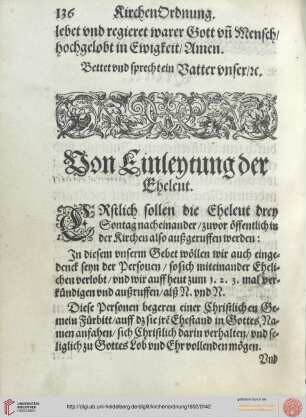 136 KirchenOrdnung.
lebet vnd regieret warer Gott vñ Mensch/
hochgelobt in Ewigkeit/ Amen.
Bettet vnd sprecht ein Vatter vnser/ꝛc.
Von Einleytung der
Eheleut.
ERstlich sollen die Eheleut drey
Sontag nacheinander/ zuvor öffentlich in
der Kirchen also außgeruffen werden:
In diesem vnserm Gebet wöllen wir auch einge-
denck seyn der Personen/ so sich miteinander Eheli-
chen verlobt/ vnd wir auff heut zum 1. 2. 3. mal ver-
kündigen vnd außruffen/ alß N. vnd N.
Diese Personen begeren einer Christlichen Ge-
mein Fürbitt/ auff dz sie jrē Ehestand in Gottes Na-
men anfahen/ sich Christlich darin verhalten/ vnd se-
liglich zu Gottes Lob vnd Ehr vollenden mögen.
Vnd
http://digi.ub.uni-heidelberg.de/diglit/kirchenordnung1602/0142
UNIVERSITÄTS-
BIBLIOTHEK
HEIDELBERG